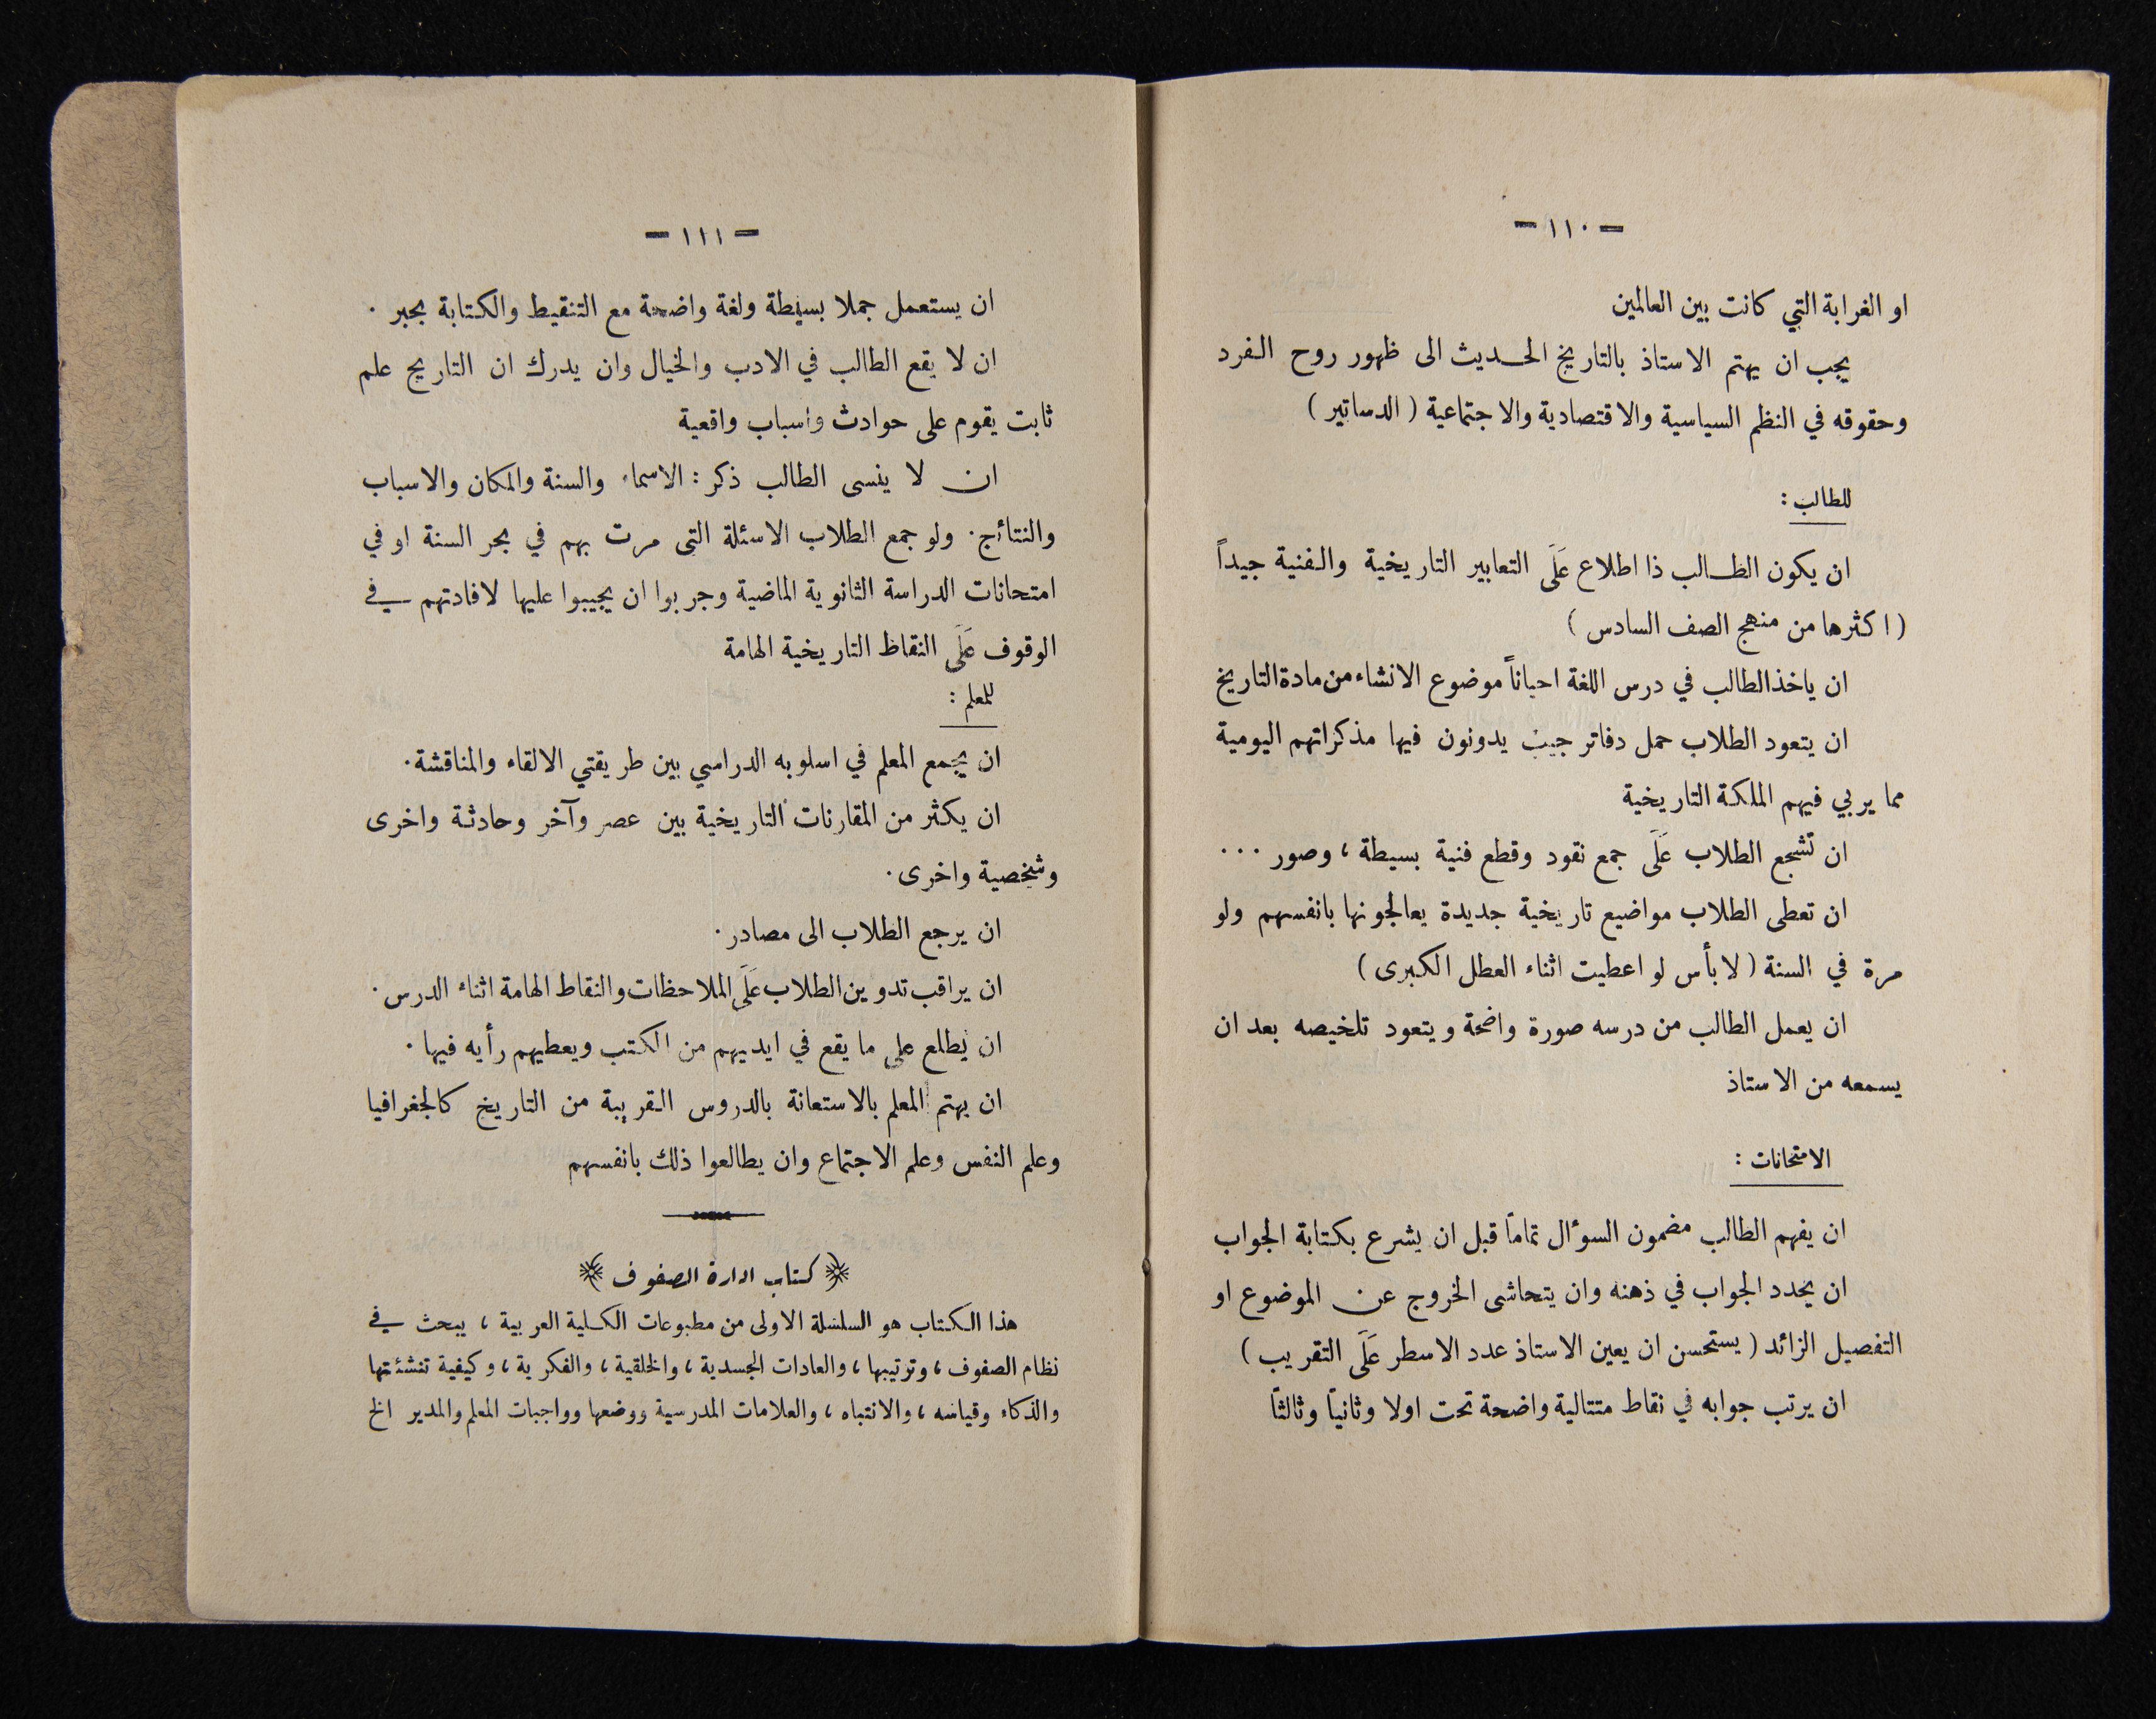 — ١١٠ —
او الغرابة التي كانت بين العالمين
يجب ان يهتم الاستاذ بالتاريخ الحديث الى ظهور روح الفرد
وحقوقه في النظم السياسية والاقتصادية والاجتماعية ( الدساتير )
للطالب :
ان يكون الطالب ذا اطلاع عَلَى التعابير التاريخية والفنية جيداً
( اكثرها من منهج الصف السادس )
ان ياخذ الطالب في درس اللغة احياناً موضوع الانشاء من مادة التاريخ
ان يتعود الطلاب حمل دفاتر جيب يدونون فيها مذكراتهم اليومية
مما يربي فيهم الملكة التاريخية
ان تشجع الطلاب عَلَى جمع نقود وقطع فنية بسيطة ، وصور ...
ان تعطى الطلاب مواضيع تاريخية جديدة يعالجونها بانفسهم ولو
مرة في السنة ( لا بأس لو اعطيت اثناء العطل الكبرى )
ان يعمل الطالب من درسه صورة واضحة ويتعود تلخيصه بعد ان
يسمعه من الاستاذ
الامتحانات :
ان يفهم الطالب مضمون السوءال تماماً قبل ان يشرع بكتابة الجواب
ان يحدد الجواب في ذهنه وان يتحاشى الخروج عن الموضوع او
التفصيل الزائد ( يستحسن ان يعين الاستاذ عدد الاسطر عَلَى التقريب )
ان يرتب جوابه في نقاط متتالية واضحة تحت اولا وثانياً وثالثاً
— ١١١ —
ان يستعمل جملا بسيطة ولغة واضحة مع التنقيط والكتابة بحبر .
ان لا يقع الطالب في الادب والخيال وان يدرك ان التاريخ علم
ثابت يقوم على حوادث واسباب واقعية
ان لا ينسى الطالب ذكر : الاسماء والسنة والمكان والاسباب
والنتائج . ولو جمع الطلاب الاسئلة التى مرت بهم في بحر السنة او في
امتحانات الدراسة الثانوية الماضية وجربوا ان يجيبوا عليها لافادتهم في
الوقوف عَلَى النقاظ التاريخية الهامة
للمعلم :
ان يجمع المعلم في اسلوبه الدراسي بين طريقتي الالقاء والمناقشة .
ان يكثر من المقارنات التاريخية بين عصر وآخر وحادثة واخرى
وشخصية واخرى .
ان يرجع الطلاب الى مصادر .
ان يراقب تدوين الطلاب عَلَى الملاحظات والنقاط الهامة اثناء الدرس .
ان يطلع على ما يقع في ايديهم من الكتب ويعطيهم رأيه فيها .
ان يهتم المعلم بالاستعانة بالدروس القريبة من التاريخ كالجغرافيا
وعلم النفس وعلم الاجتماع وان يطالعوا ذلك بانفسهم
كتاب ادارة الصفوف
هذا الكتاب هو السلسلة الاولى من مطبوعات الكلية العربية ، يبحث في
نظام الصفوف ، وترتيبها ، والعادات الجسدية ، والخلقية ، والفكرية ، وكيفية تنشئتها
والذكاء وقياسه ، والانتباه ، والعلامات المدرسية ووضعها وواجبات المعلم والمدير الخ